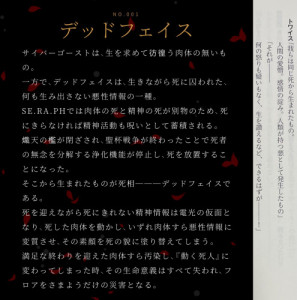 NO.001
デッドフェイス
サイバーゴーストは、生を求めて彷徨う肉体の無いも
の。
一方で、デッドフェイスは、生きながら死に囚われた、
何も生み出さない悪性情報の一種。
SE.RA.PHでは肉体の死と精神の死が別物のため、死
にきらなければ精神活動も呪いとして蓄積される。
熾天の檻が閉ざされ、聖杯戦争が終わったことで死者
の無念を分解する浄化機能が停止し、死を放置するこ
とになった。
そこから生まれたものが死相―――デッドフェイスで
ある。
死を迎えながら死にきれない精神情報は電光の仮面と
なり、死した肉体を動かし、いずれ肉体すら悪性情報に
変質させ、その素顔を死の貌に塗り替えてしまう。
満足な終わりを迎えた肉体すら汚染し、『動く死人』に
変わってしまった時、その生命意義はすべて失われ、フ
ロアをさまようだけの災害となる。